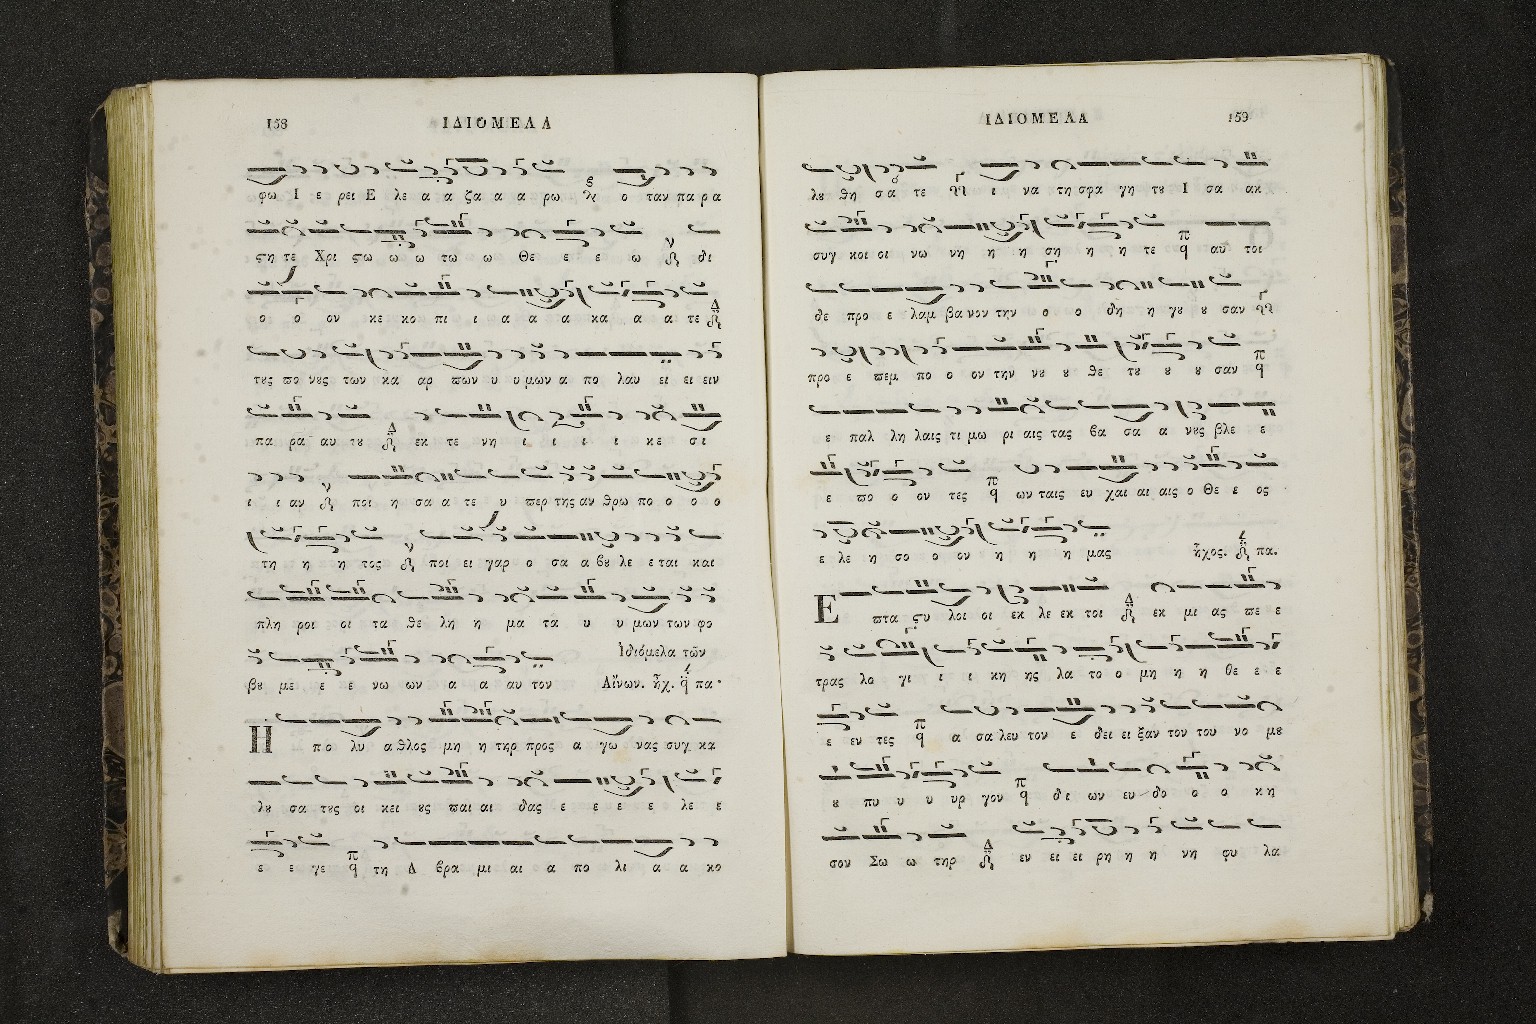 158 ΙΔΙΟΜΕΛΑ
φω Ι ε ρει Ε λε α α ζα α α ρω ο ταν πα ρα
ϛη τε Χρι ϛω ω ω τω ω Θε ε ε ω δι
ο ο ον κε κο πι ι α α α κα α α τε
τȣς πο νȣς των κα αρ πων υ υ μων α πο λαυ ει ει ειν
πα ρα αυ τȣ εκ τε νη ι ι ι ι κε σι
ι ι αν ποι η σα α τε υ περ της αν θρω πο ο ο ο
τη η η τος ποι ει γαρ ο σα α βȣ λε ε ται και
πλη ροι οι τα θε λη η μα τα υ υ μων των φο
Ἰδιόμελα τῶν
βȣ με ε ε νω ων α α αυ τον Αἴνων. ἦχ. πα·
Η πο λυ α θλος μη η τηρ προς α γω νας συγ κα
λȣ σα τȣς οι κει ȣς παι αι δας ε ε ε ε λε ε
ε ε γε τη Α βρα μι αι α πο λι α α κο
ΙΔΙΟΜΕΛΑ 159
λȣ θη σα τε ι να τη σφα γη τȣ Ι σα ακ
συγ κοι οι νω νη η η ση η η τε αυ τοι
δε προ ε λαμ βα νον την ο ο δη η γȣ ȣ σαν
προ ε πεμ πο ο ον την νȣ ȣ θε τȣ ȣ ȣ σαν
ε παλ λη λαις τι μω ρι αις τας βα σα α νȣς βλε ε
ε πο ο ον τες ων ταις ευ χαι αι αις ο Θε ε ος
ε λε η σο ο ον η η η μας ἦχος. πα.
Ε πτα ϛυ λοι οι εκ λε εκ τοι εκ μι ας πε ε
τρας λο γι ι ι κη ης λα το ο μη η η θε ε ε
ε εν τες α σα λευ τον ε δει ει ξαν τον του νο μȣ
ȣ πυ υ υ υρ γον δι ων ευ δο ο ο κη
σον Σω ω τηρ εν ει ει ρη η η νη φυ λα